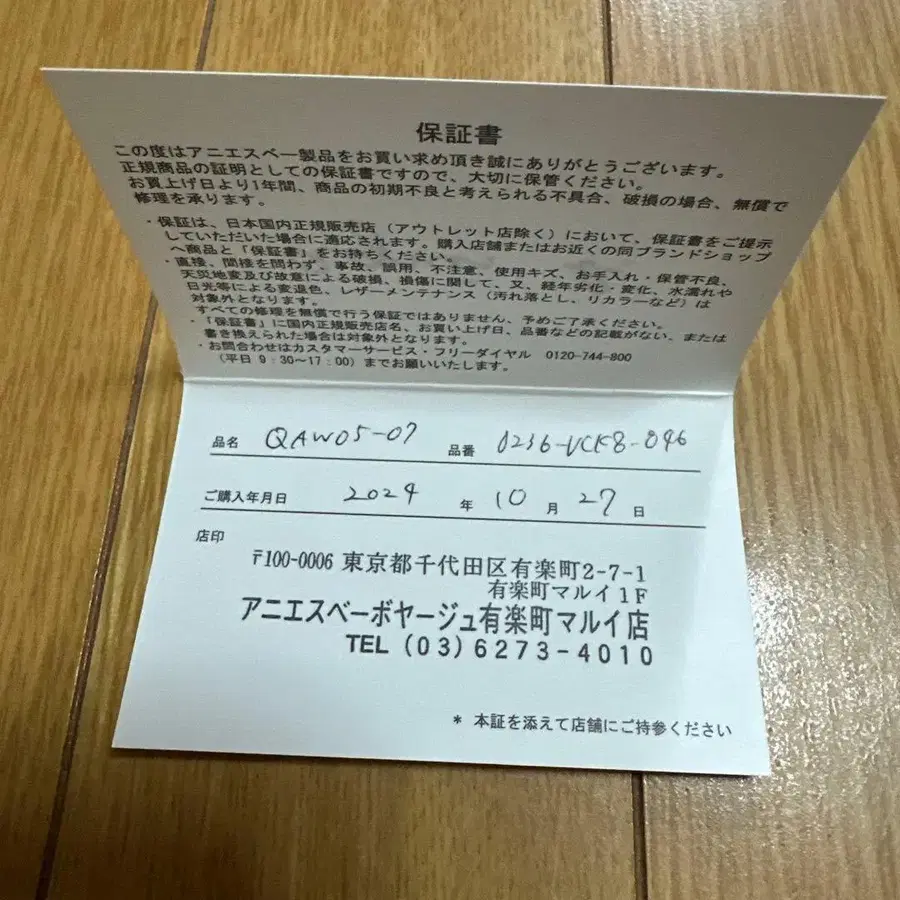 保証書
この度はアニエスベー製品をお買い求め頂き誠にありがとうございます。
正規商品の証明としての保証書ですので、大切に保管ください。
お買上げ日より1年間、商品の初期不良と考えられる不具合、破損の場合、無償で
修理を承ります。
・保証は、日本国内正規販売店（アウトレット店除く）において、保証書をご提示
していただいた場合に適応されます。購入店舗またはお近くの同ブランドショップ
へ商品と「保証書」をお持ちください。
・直接、間接を問わず、事故、誤用、不注意、使用キズ、お手入れ・保管不良、
天災地変及び故意による破損、損傷に関して、又、経年劣化・変化、水濡れや
日光等による変退色、レザーメンテナンス（汚れ落とし、リカラーなど）は
対象外となります。
すべての修理を無償で行う保証ではありません、予めご了承ください。
・「保証書」に国内正規販売店名、お買い上げ日、品番などの記載がない、または
書き換えられた場合は対象外となります。
・お問合わせはカスタマーサービス・フリーダイヤル 0120-744-800
（平日 9：30〜17：00）までお願いいたします。
品名 QAW05-07 品番 0236-VCK8-096
ご購入年月日 2024 年 10 月 27 日
店印
〒100-0006 東京都千代田区有楽町2-7-1
有楽町マルイ1F
アニエスベーボヤージュ有楽町マルイ店
TEL (03)6273-4010
* 本証を添えて店舗にご持参ください